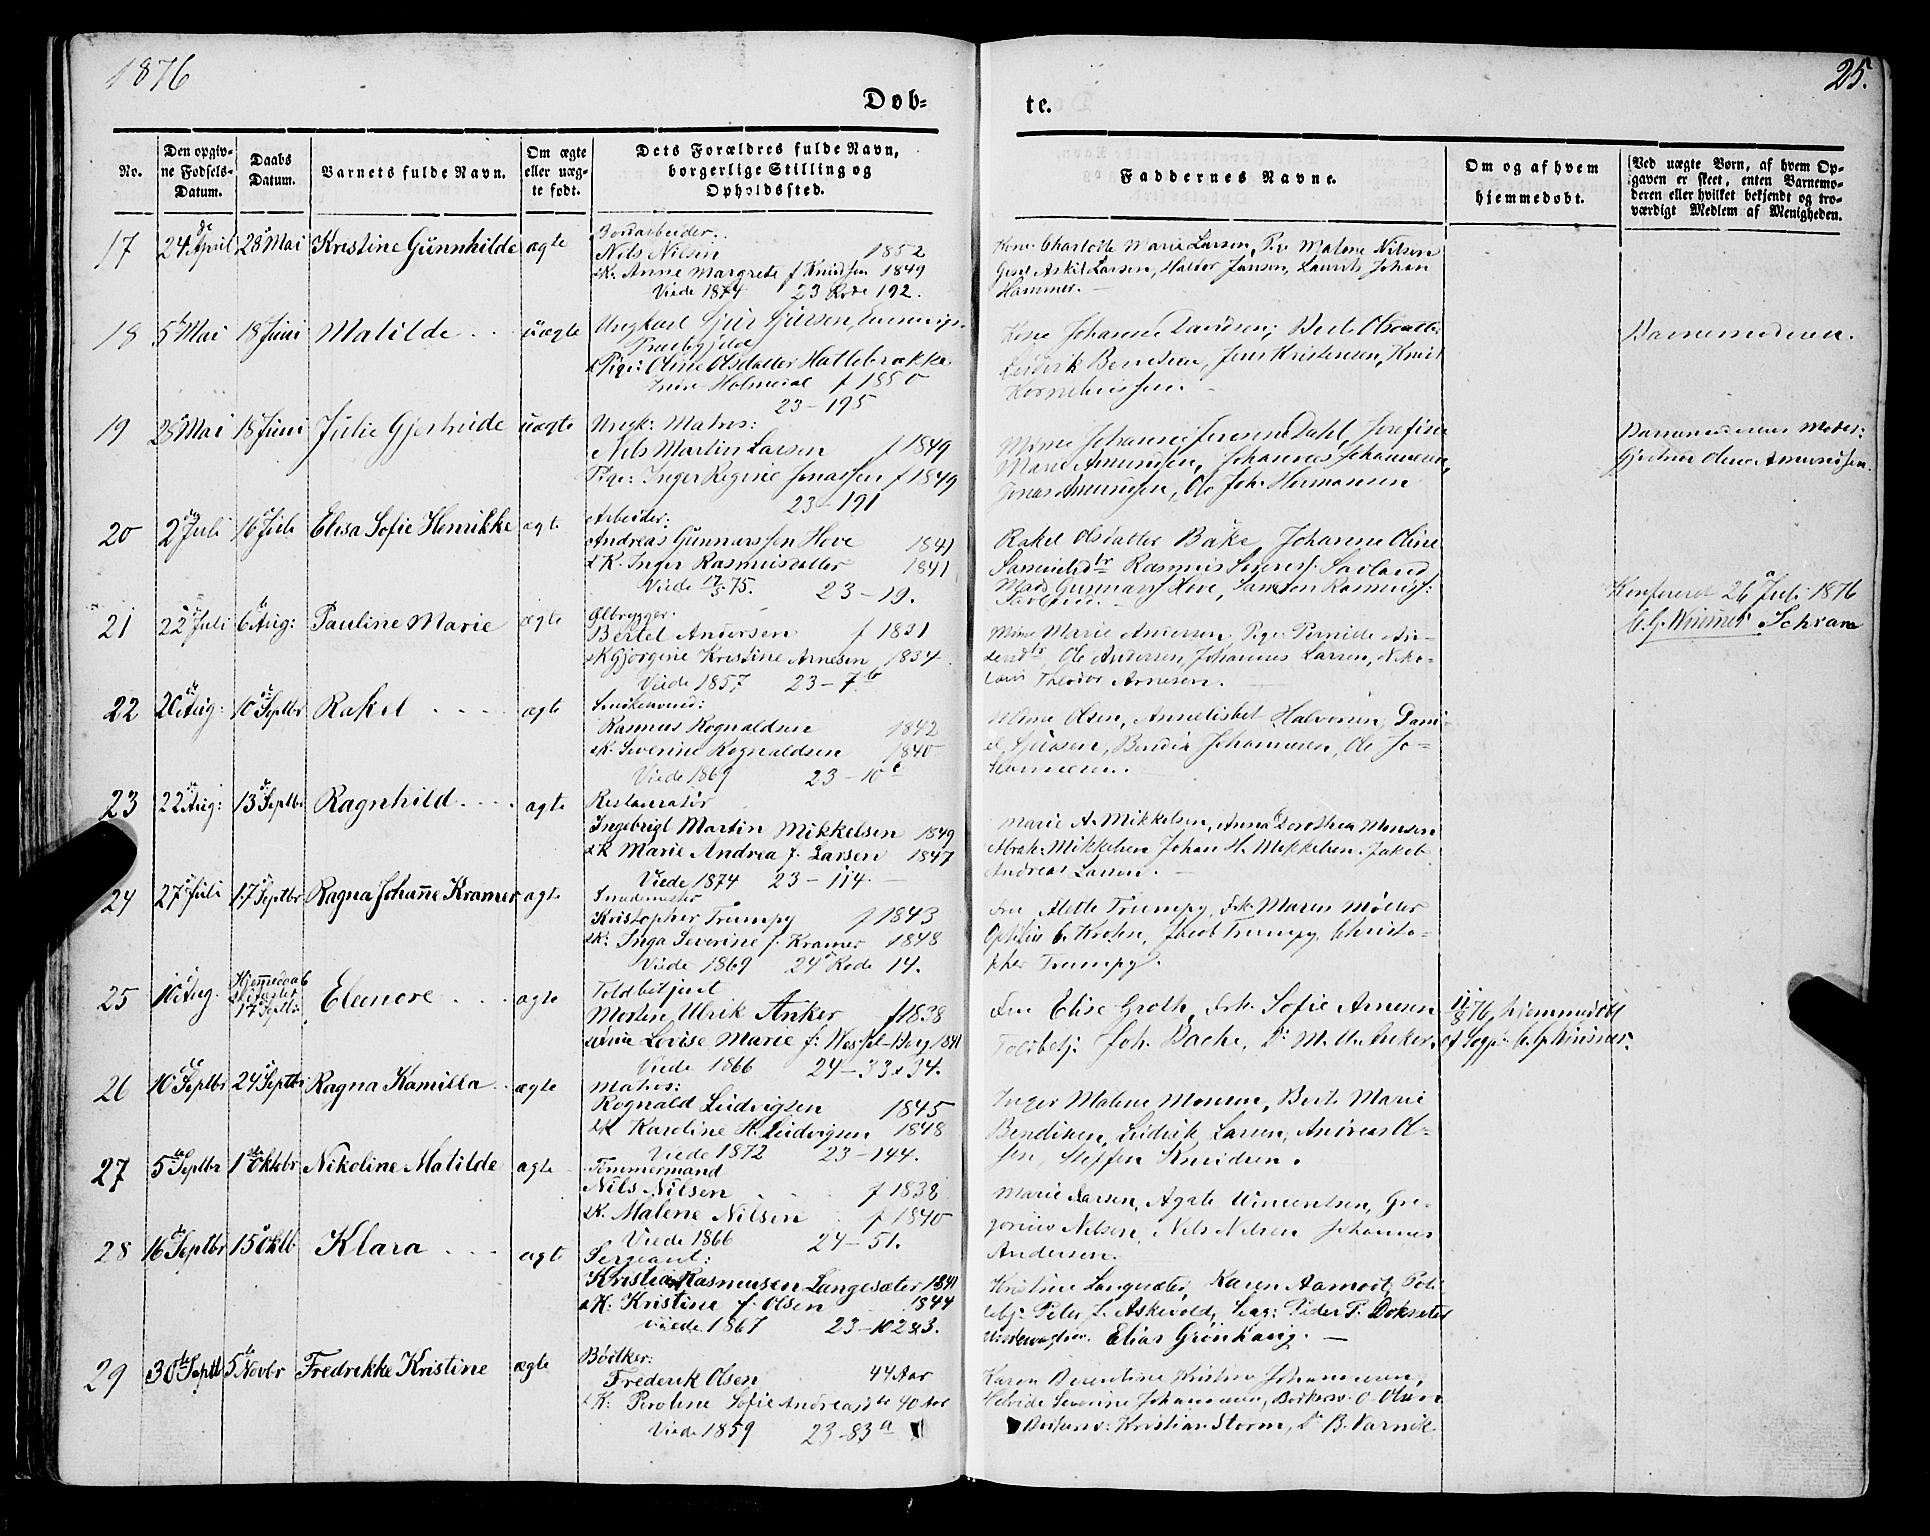 1876
25.
Døb-
te.
No.
Den opgiv-
ne Fødsels-
Datum.
Daabs
Datum.
Barnets fulde Navn.
Om ægte
eller uæg-
te født.
Dets Forældres fulde Navn,
borgerlige Stilling og
Opholdssted.
Faddernes Navne.
Om og af hvem
hjemmedøbt.
Ved uægte Børn, af hvem Op-
gaven er skeet, enten Barnemo-
deren eller hvilket bekjendt og tro-
værdigt Medlem af Menigheden.
17 24de April 28 Mai Kristine Gunnhilde ægte
Jordarbeider:
Nils Nilsen 1852
& K. Anne Margrete f Knudsen 1849
Viede 1874 23 Rode 192.
Kone Charlotte Marie Larsen, Malene Nilsen
Askil Larsen, Haldor Jansen, Laurits Johan
Hammer.
18 5 Mai 18 Juni Matilde uægte
Ungkarl
& Pige: Oline Olsdatter Hattebrække
Indre Holmedal f 1850
23 - 195
Kone Johanne Davidsen; Berte Olsdatter
Jens Kristensen, Knut
Barnemoderen.
19 28 Mai 18 Juni Julie Gjertrude uægte
Ungk: Matros:
Nils Martin Larsen f 1849
Pige: Inger Regine Jonassen f 1849
23 - 191
Johanne Dahl, Josefine
Marie Amundsen, Johannes Johannesen,
Jonas Amundsen, Ole Joh. Hermansen
Barnemoderens Moder:
Gjertrud Oline Amundsen.
20 2 Juli 16 Juli Elisa Sofie Henrikke ægte
Arbeider:
Andreas Gunnarssen Hove 1841
& K. Inger Rasmusdatter 1841
Viede 17/5 75. 23 - 19.
Rakel Olsdatter Bakke, Johanne Oline
Samuelsdtr Rasmus
Mads Gunnarss Hove, Samson Rasmuss:
Konfereret 26 Juli 1876
21 22 Juli 6 Aug: Pauline Marie ægte
Ølbrygger:
Bertel Andersen f 1831
& K Gjørgine Kristine Arnesen 1834
Viede 1857 23 - 7b
Marie Andersen, Pige Pernille An-
dersdtr, Ole Andersen, Johannes Larsen, Niko-
lai Theodor Arnesen.
22 20 Aug: 10 Septbr Rakel ægte
Rasmus Rognaldsen 1842
& K. Severine Rognaldsen 1840
Viede 1869 23 - 10c
Olsen, Annelisbet Halvorsen, Dani-
el Sjursen, Bendix Johannesen, Ole Jo-
hannesen.
23 22 Aug: 13 Septbr Ragnhild ægte
Restauratør
Ingebrigt Martin Mikkelsen 1849
& K Marie Andrea f. Larsen 1847
Viede 1874 23 - 114.
Marie A. Mikkelsen, Anna Dorothea Monsen
Abrah. Mikkelsen Johan H. Mikkelsen. Jakob
Andreas Larsen.
24 27 Juli 17 Septbr Ragna Johanne Kramer ægte
Smedmester
Kristopher Trumpy f 1843
& K: Inga Severine f. Kramer 1848
Viede 1869 24 Rode 14.
Fru Alette Trumpy, Frk. Maren Møller
C. Krohn, Jacob Trumpy, Christo-
pher Trumpy.
25 10 Aug. Hjemmedaab
17 Septbr Eleonore ægte
Toldbetjent
Morten Ulrik Anker f 1838
Lovise Marie f: Wessel-Berg 1841
Viede 1866 24 - 33 & 34.
Fru Elise Groth, Frk. Sofie Arnesen
Toldbetj. Joh. Bache, Dr. M. U. Anker.
11/8 76, hjemmedøbt
af Sogpr.
26 10de Septbr 24 Septbr Ragna Kamilla ægte
Matros:
Rognald Ludvigsen 1845
& K Karoline H. Ludvigsen 1848
Viede 1872 23 - 144.
Inger Malene Monsen, Berte Marie
Bendiksen, Ludvik Larsen, Andreas Ol-
sen, Steffen Knudsen.
27 5te Septbr 1ste Oktbr Nikoline Matilde ægte
Tømmermand
Nils Nilsen f 1838
& K. Malene Nilsen f 1840
Viede 1866 24 - 51.
Marie Larsen, Agate Vincentsen, Gre-
gorius Nilsen, Nils Nilsen Johannes
Andersen.
28 16de Septbr 15 Oktb Klara ægte
Sergeant:
Kristian Rasmussen Langesæter 1841
& K: Kristine f. Olsen 1844
Viede 1867 23 - 102&3.
Kristine Langesæter, Karen Aamodt, Poli-
tibj. Peter L. Askevold, Serg: Peder P. Doksæter
Undervagtm. Elias Grønhaug.
29 30te Septbr 5 Novbr Fredrikke Kristine ægte
Bødker:
Frederik Olsen 44 Aar
& K: Peroline Sofie Andreasdtr 40 Aar
Viede 1859 23 - 83a
Karen Berentine Kristine Johannesen,
Severine Johannesen, Bødkersv. O. Olsen
Kristian Storm, Dr. B. Varvik.